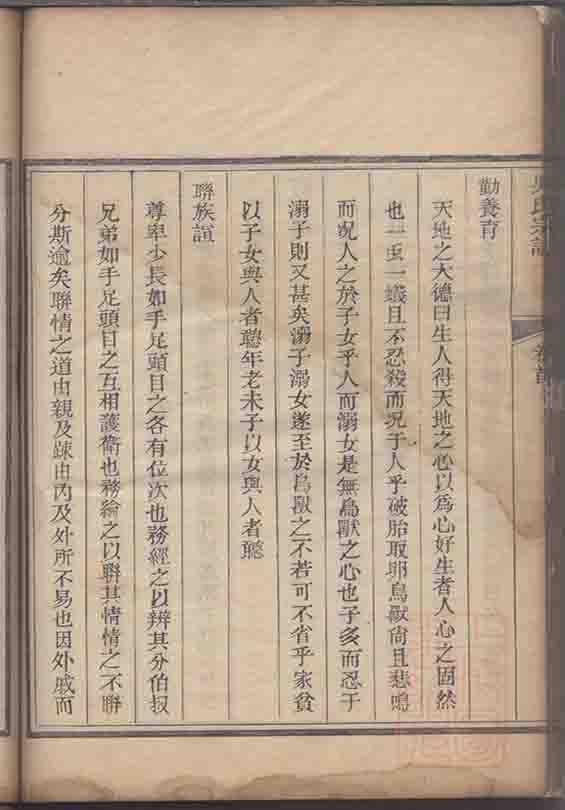 氏宗譜 卷首
勤養育
天地之大德曰生人得天地之心以爲心好生者人心之固然
也一虫一蟻且不忍殺而况于人乎破胎取卵鳥獸尙且悲鳴
而况人之於子女乎人而溺女是無鳥獸之心也子多而忍于
溺子則又甚矣溺子溺女遂至於鳥獸之不若可不省乎家貧
以子女與人者聽年老未子以女與人者聽
聯族誼
尊卑少長如手足頭目之各有位次也務經之以辨其分伯叔
兄弟如手足頭目之互相護衛也務綸之以聯其情情之不聯
分斯逾矣聯情之道由親及疎由內及外所不易也因外戚而